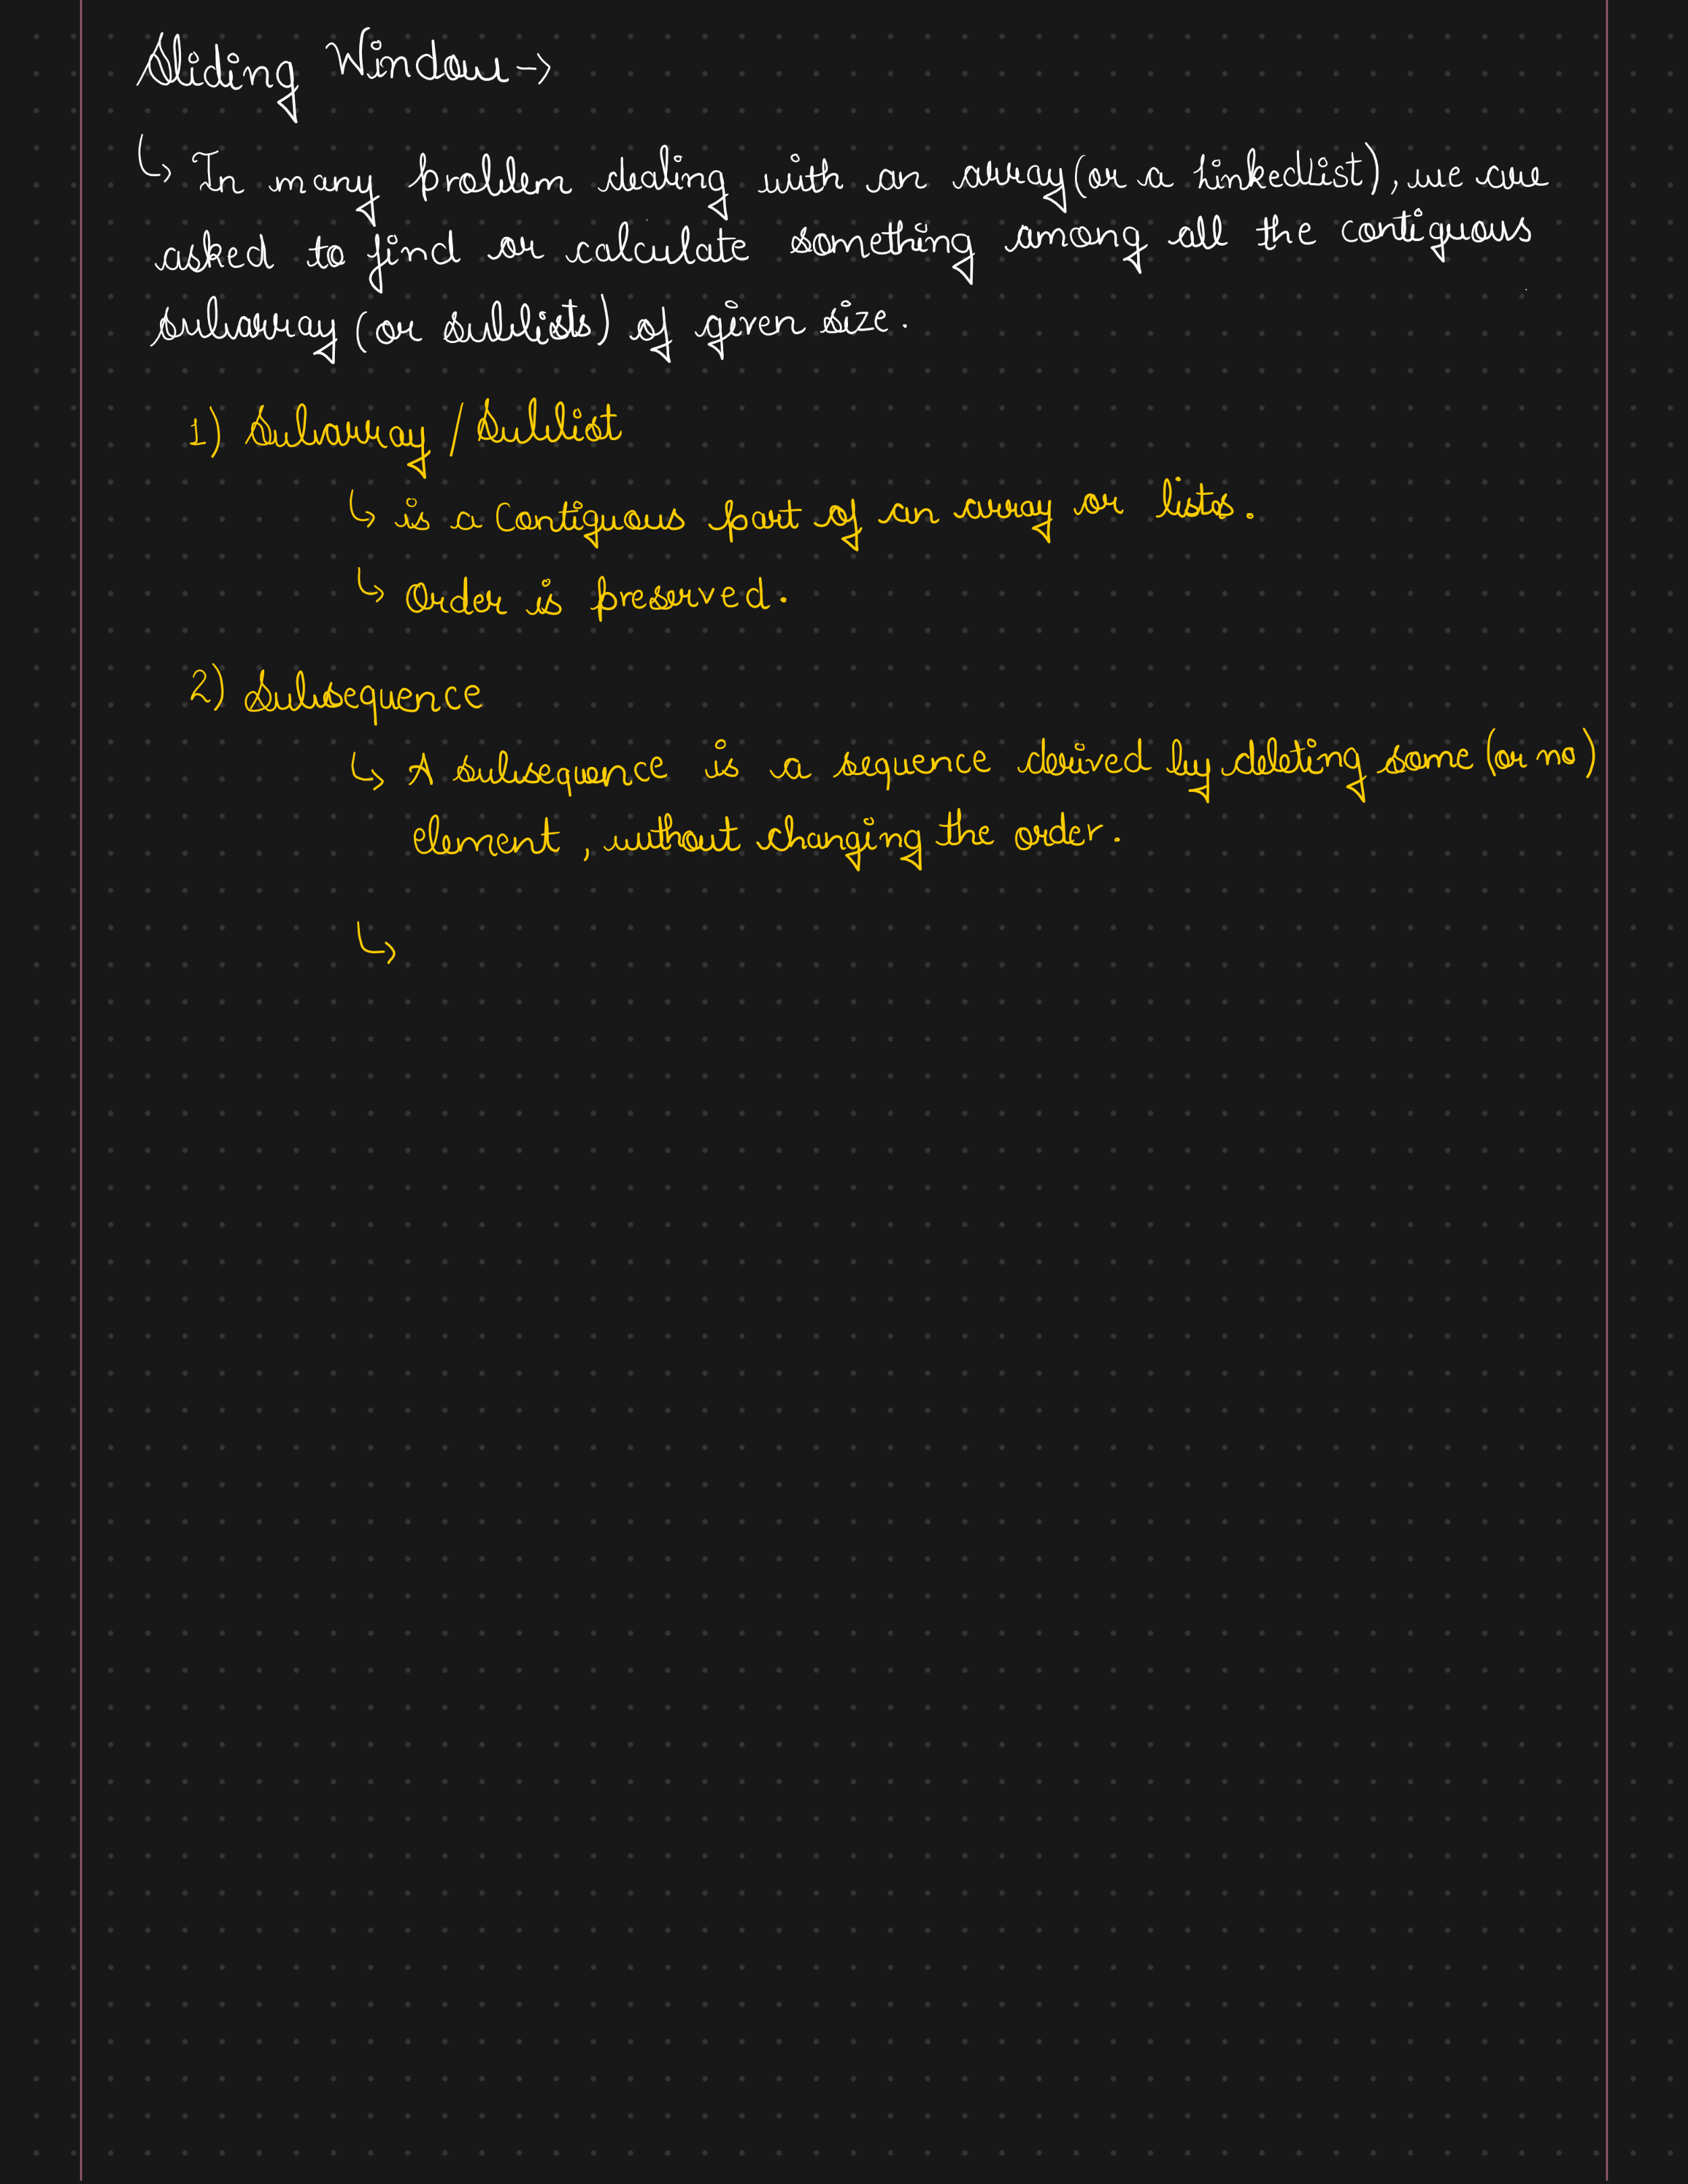 Sliding Window →
↳ In many problem dealing with an array (or a LinkedList), we are
asked to find or calculate something among all the contiguous
subarray (or sublists) of given size.
1) Subarray / Sublist
↳ is a Contiguous part of an array or lists.
↳ Order is preserved.
2) Subsequence
↳ A subsequence is a sequence derived by deleting some (or no)
element, without changing the order.
↳